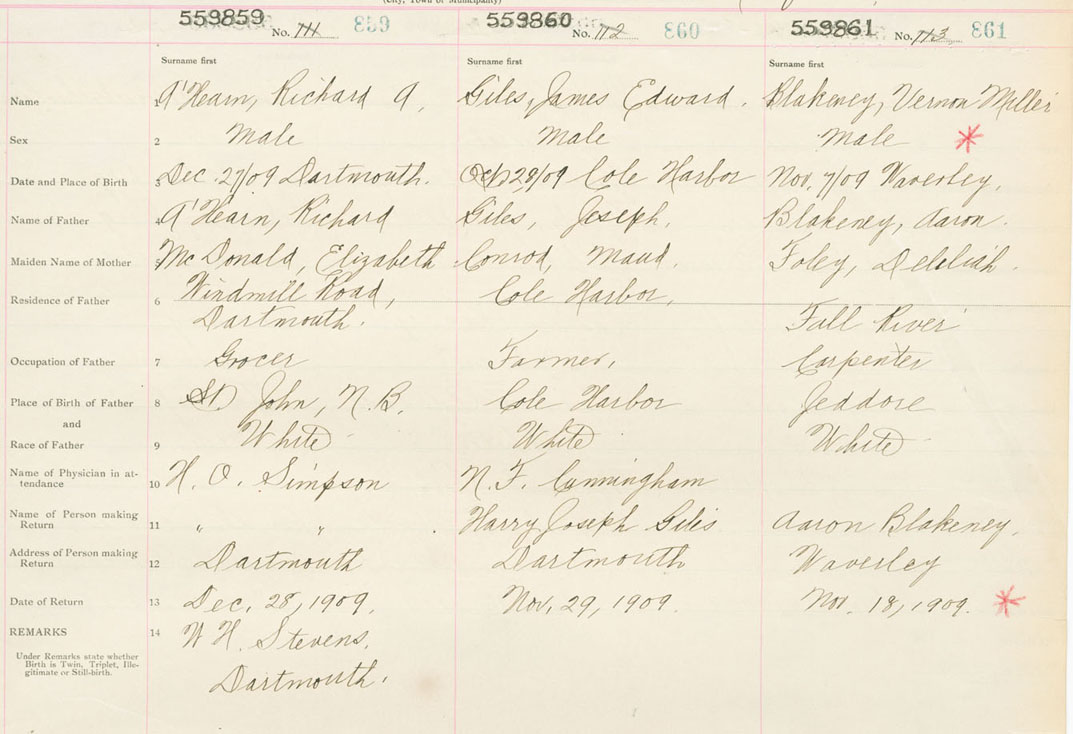 (City, Town or Municipality)
559859 No. 111 859 559860 No. 112 860 559861 No. 113 861
Surname first Surname first Surname first
Name 1 A'Hearn, Richard A. Giles, James Edward. Blakeney, Vernon Miller
Sex 2 Male Male Male
Date and Place of Birth 3 Dec. 27/09 Dartmouth. Oct 28/09 Cole Harbor Nov. 7/09 Waverley.
Name of Father 4 A'Hearn, Richard Giles, Joseph. Blakeney, Aaron.
Maiden Name of Mother 5 McDonald, Elizabeth Conrod, Maud. Foley, Deleliah.
Residence of Father 6 Windmill Road, Cole Harbor.
Dartmouth. Fall River
Occupation of Father 7 Grocer Farmer. Carpenter
Place of Birth of Father 8 St John, N.B. Cole Harbor Jeddore
and
Race of Father 9 White White White
Name of Physician in at-
tendance 10 H. O. Simpson N. F. Cunningham
Name of Person making
Return 11 " " Harry Joseph Giles Aaron Blakeney.
Address of Person making
Return 12 Dartmouth Dartmouth Waverley
Date of Return 13 Dec. 28, 1909. Nov. 29, 1909. Nov. 18, 1909.
REMARKS 14 W H. Stevens.
Under Remarks state whether
Birth is Twin, Triplet, Ille-
gitimate or Still-birth.
Dartmouth.